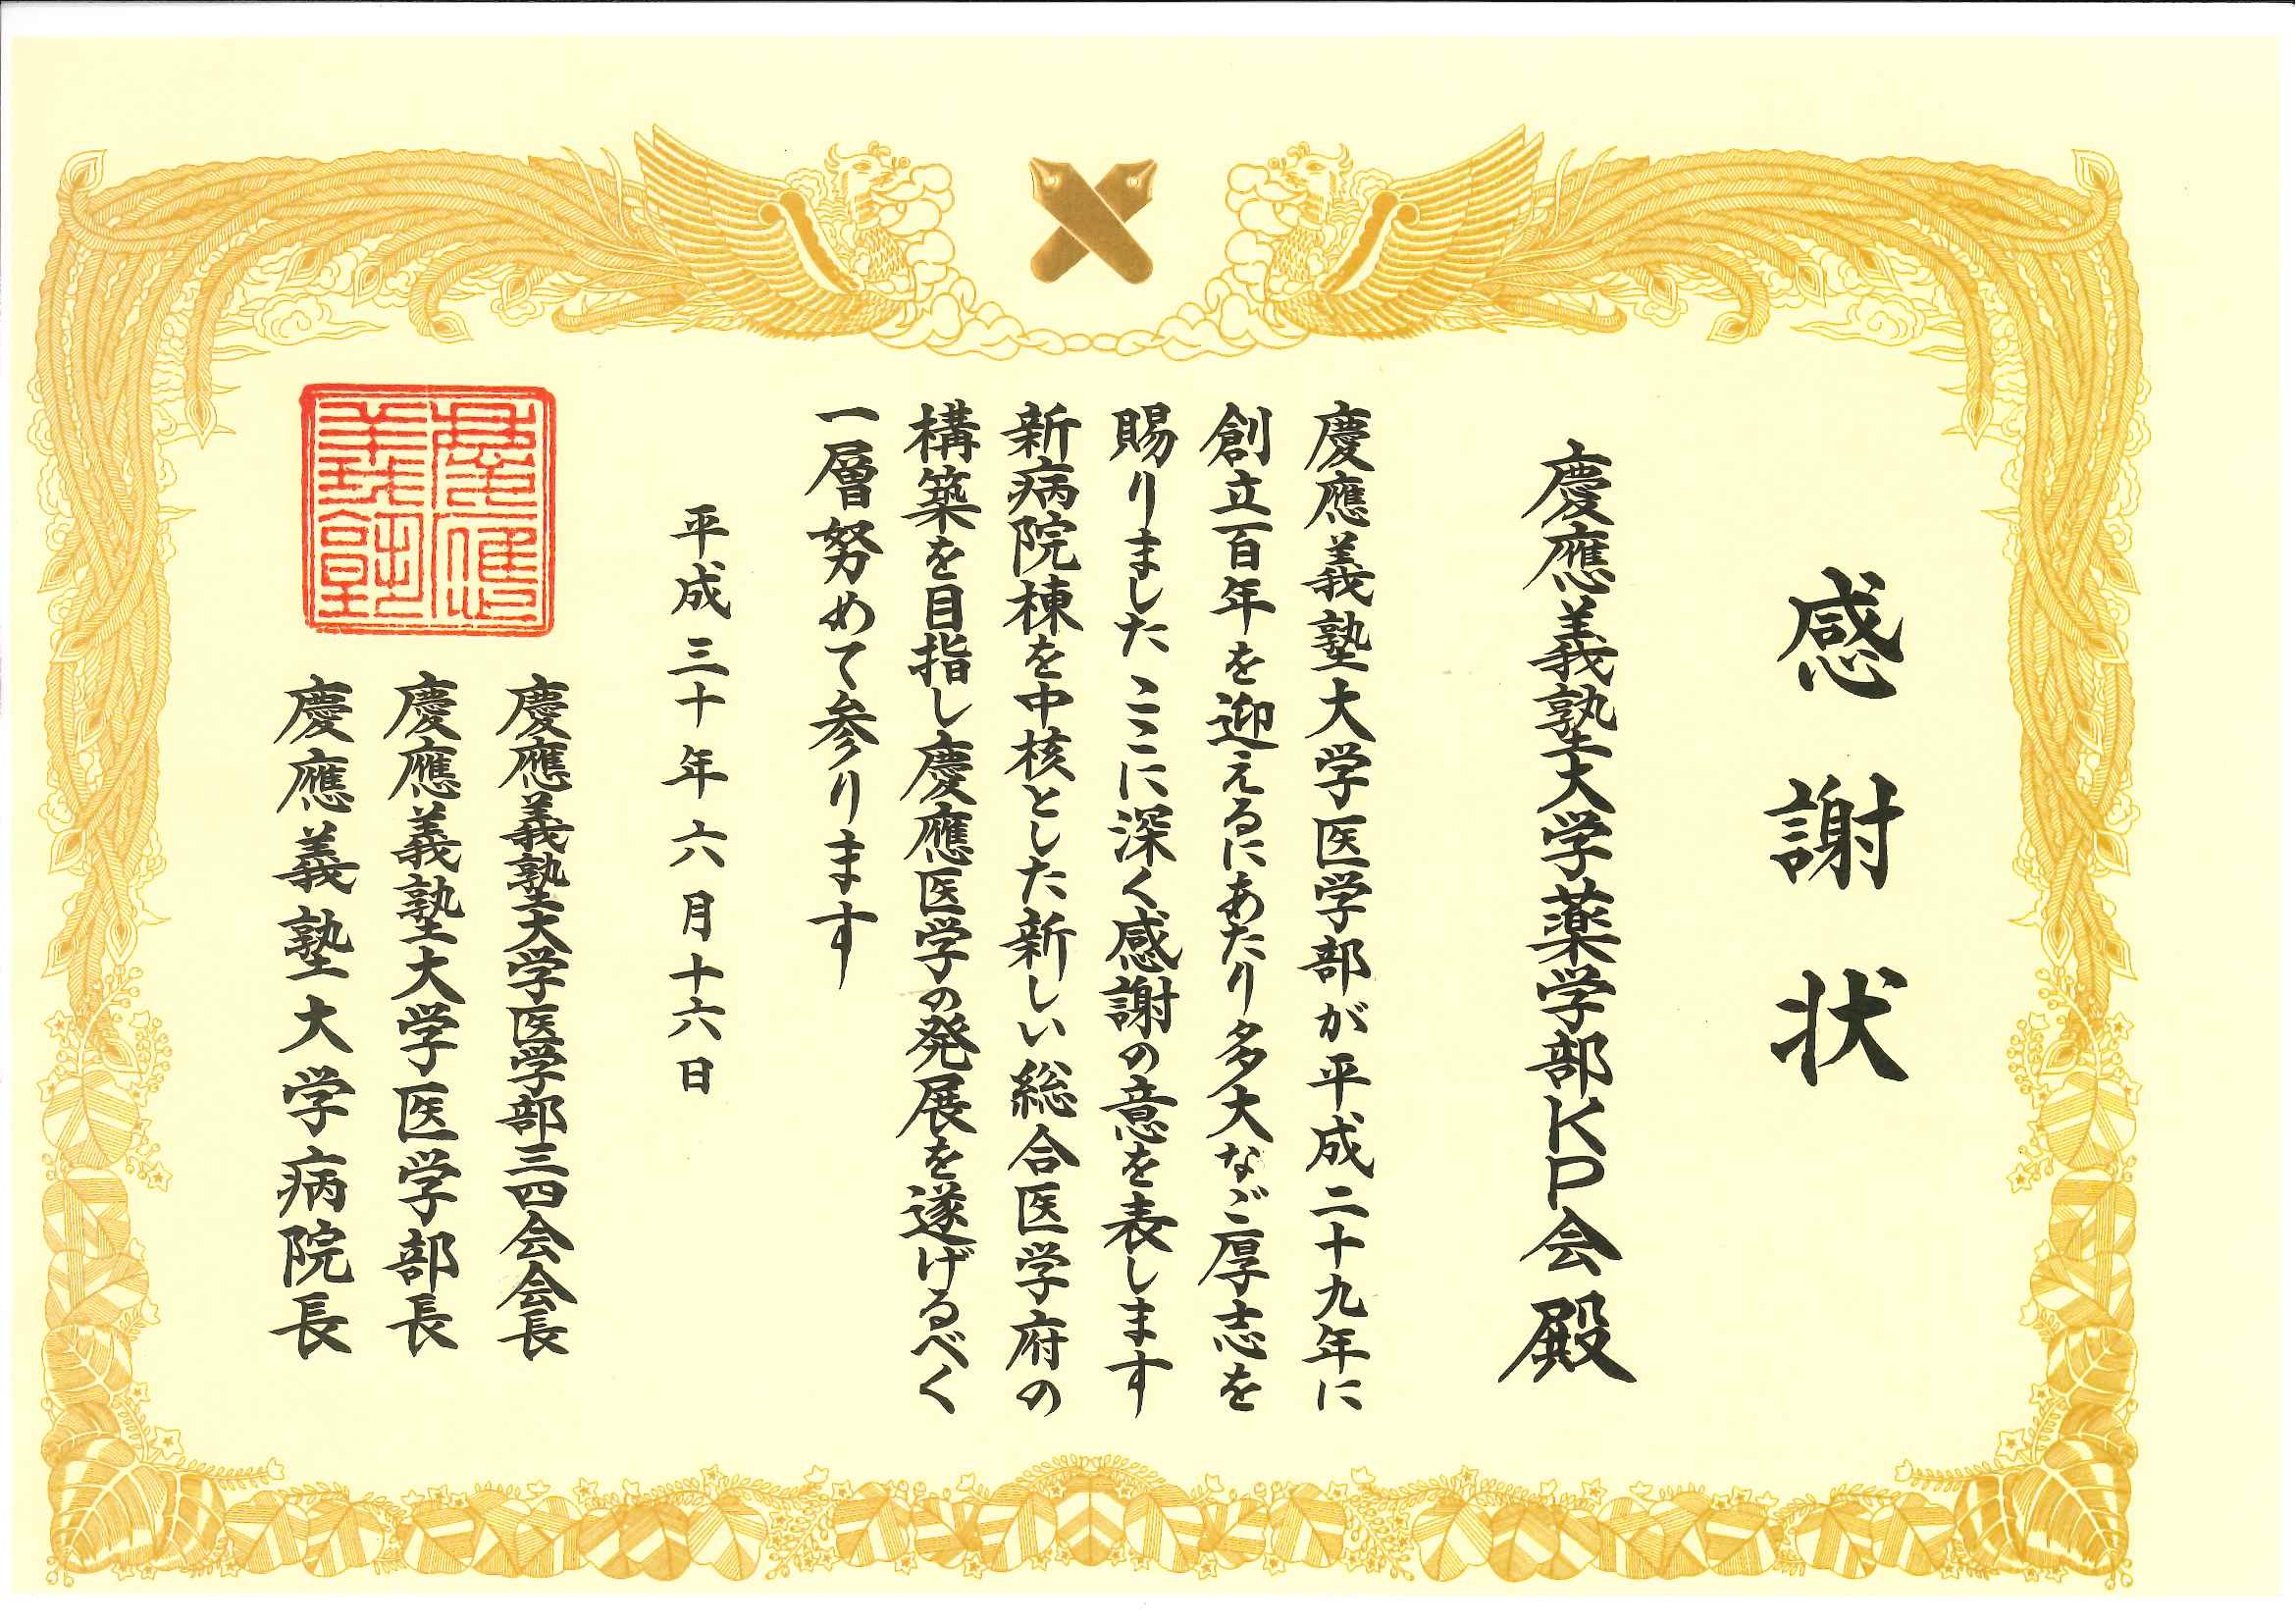 感謝状
慶應義塾大学薬学部KP会 殿
慶應義塾大学医学部が平成二十九年に
創立百年を迎えるにあたり多大なご厚志を
賜りました ここに深く感謝の意を表します
新病院棟を中核とした新しい総合医学府の
構築を目指し慶應医学の発展を遂げるべく
一層努めて参ります
平成三十年六月十六日
慶應義塾大学医学部三四会会長
慶應義塾大学医学部長
慶應義塾大学病院長
慶應
義塾